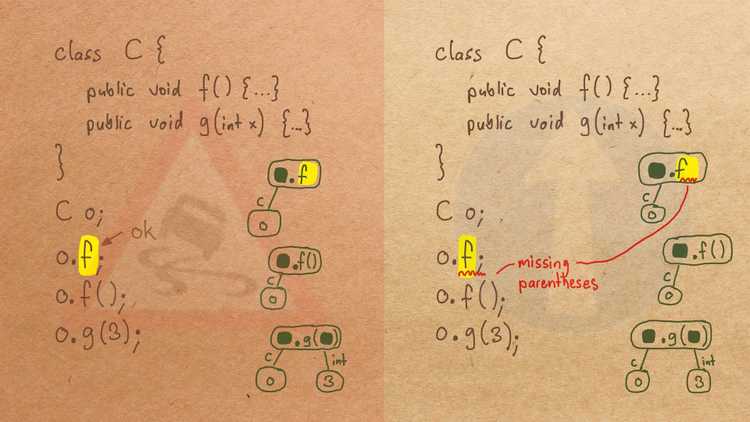 class C {
public void f() {...}
public void g(int x) {...}
}
C o;
o.f; ok
o.f();
o.g(3);
.f
C
o
.f()
C
o
.g( )
C int
o 3
class C {
public void f() {...}
public void g(int x) {...}
}
C o;
o.f; missing
parentheses
o.f();
o.g(3);
.f
C
o
.f()
C
o
.g( )
C int
o 3